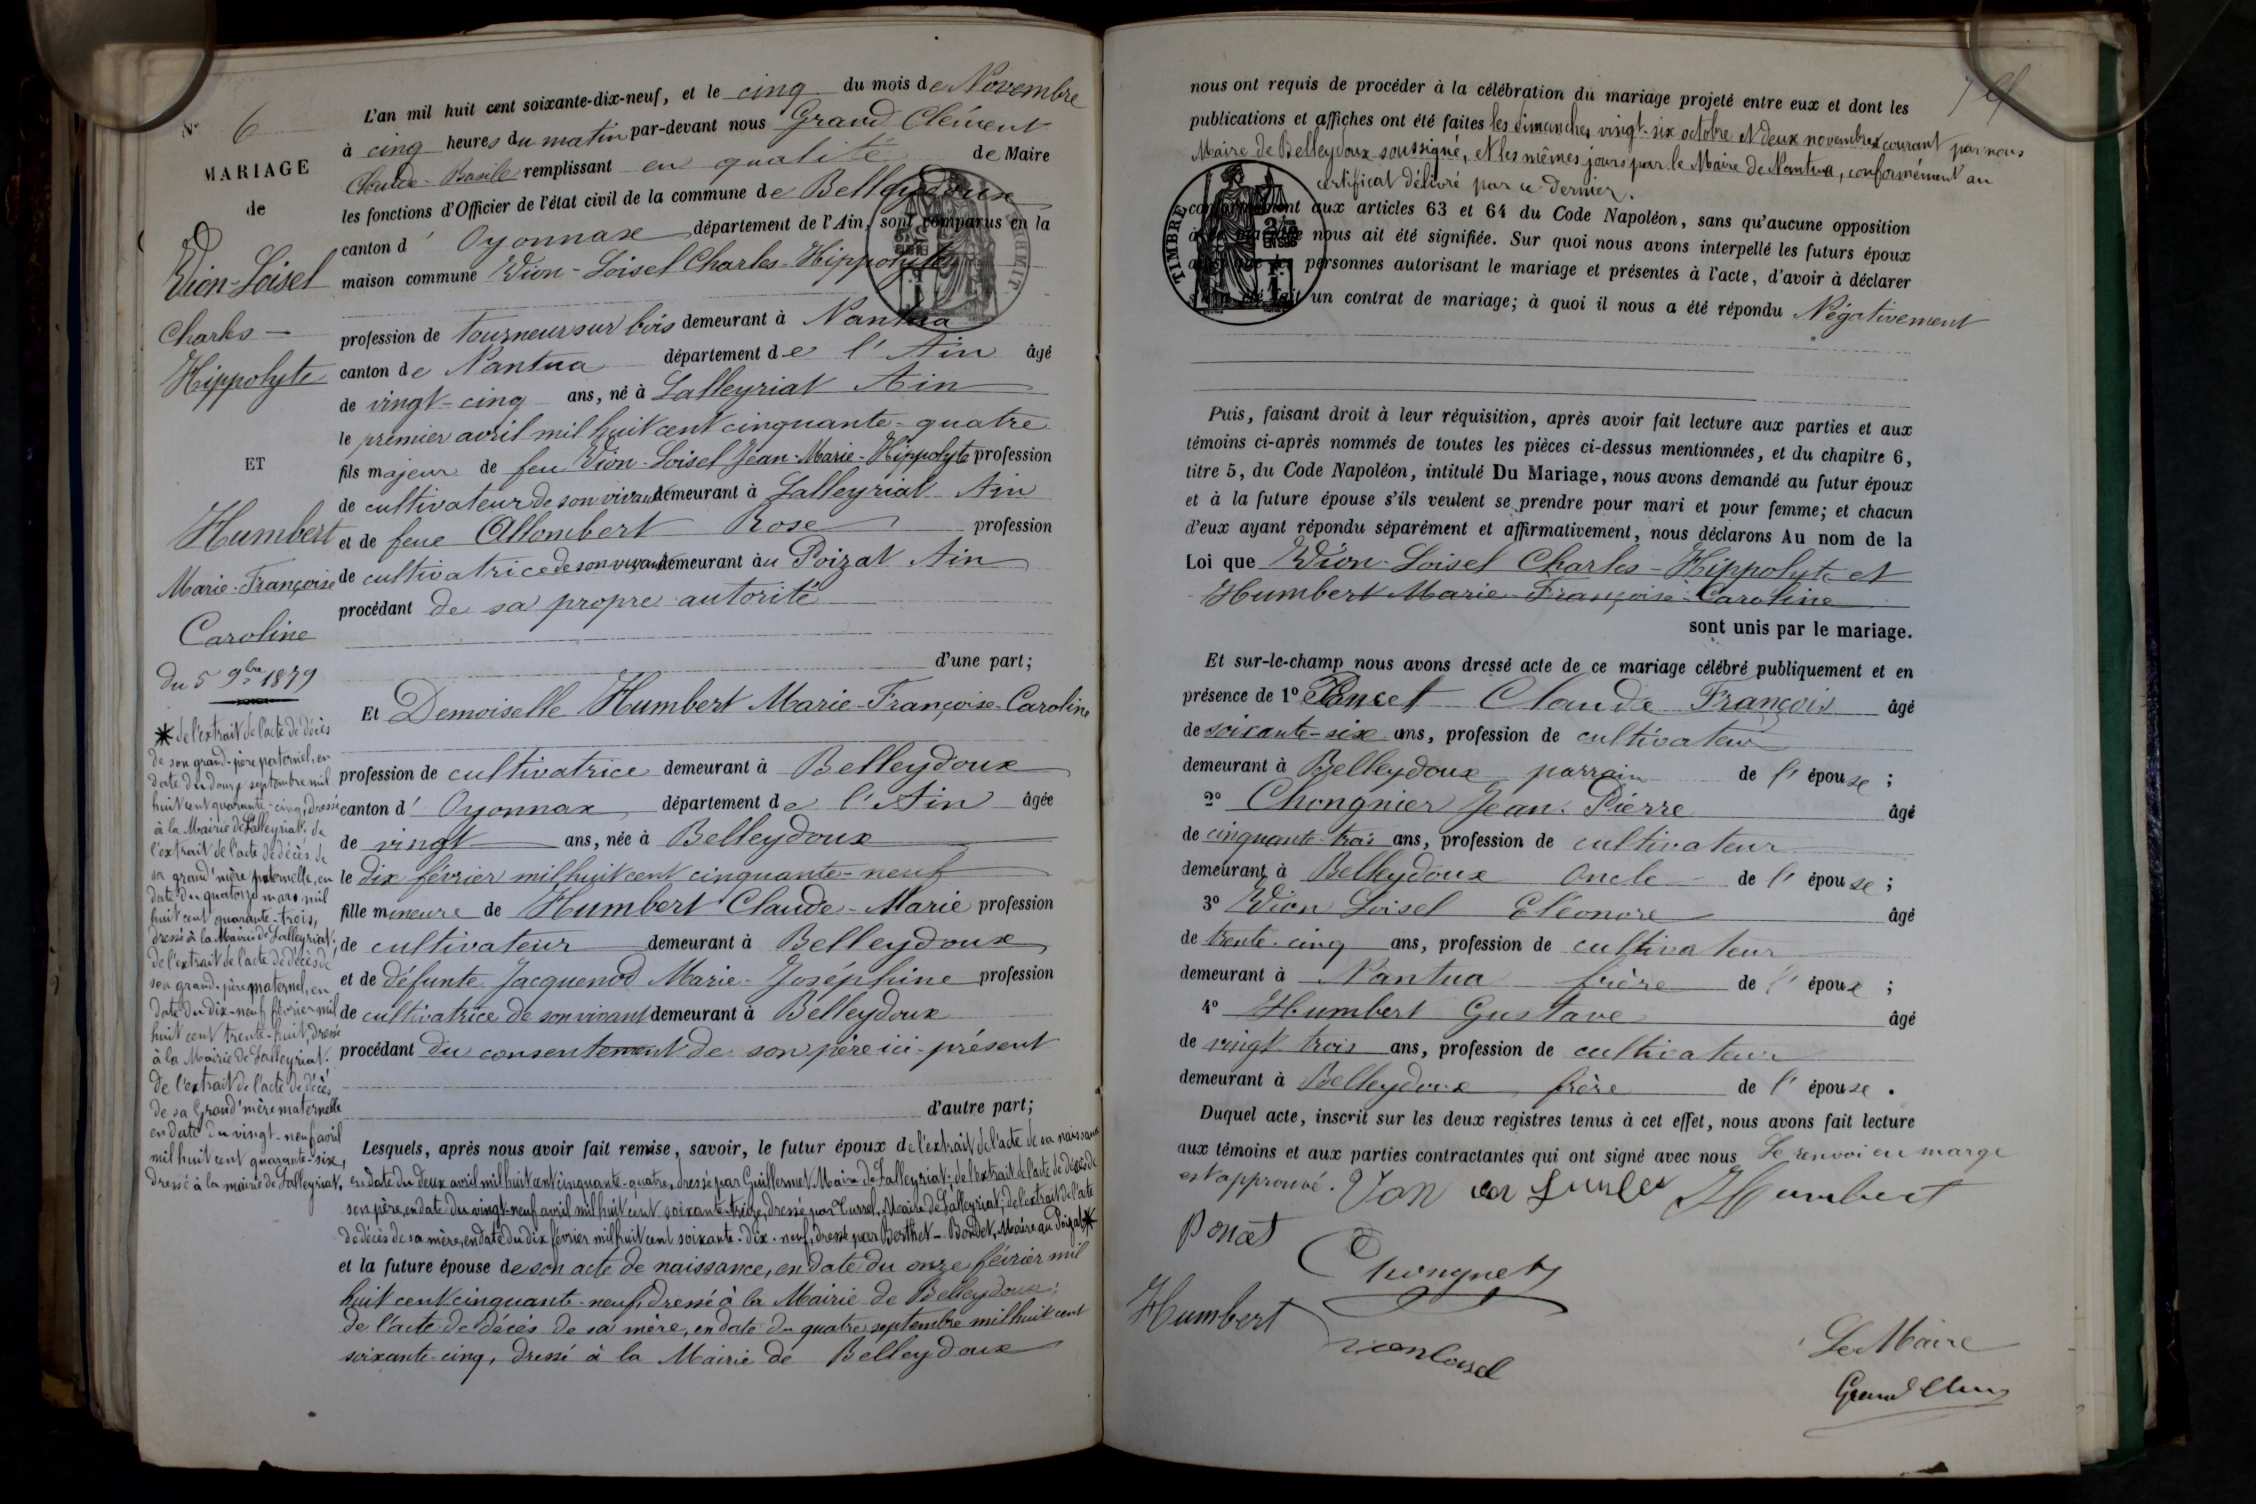 N° 6
MARIAGE
de
Vion-Loisel
Charles -
Hippolyte
ET
Humbert
Marie-Françoise
Caroline
du 5 9bre 1879
* de l'extrait de l'acte de décès
de son grand-père paternel, en
date du douze septembre mil
huit cent quarante-cinq, dressé
à la Mairie de Lalleyriat; de
l'extrait de l'acte de décès de
sa grand'mère paternelle, en
date du quatorze mars mil
huit cent quarante-trois,
dressé à la Mairie de Lalleyriat;
de l'extrait de l'acte de décès de
son grand-père maternel, en
date du dix-neuf février mil
huit cent trente-huit, dressé
à la Mairie de Lalleyriat.
de l'extrait de l'acte de décès
de sa Grand'mère maternelle
en date du vingt-neuf avril
mil huit cent quarante-six,
dressé à la mairie de Lalleyriat.
L'an mil huit cent soixante-dix-neuf, et le cinq du mois de Novembre
à cinq heures du matin par-devant nous Grand Clément
Claude-Basile remplissant en qualité de Maire
les fonctions d'Officier de l'état civil de la commune de Belleydoux
canton d' Oyonnax département de l'Ain, sont comparus en la
maison commune Vion-Loisel Charles-Hippolyte
profession de tourneur sur bois demeurant à Nantua
canton de Nantua département de l'Ain âgé
de vingt-cinq ans, né à Lalleyriat Ain
le premier avril mil huit cent cinquante-quatre
fils majeur de feu Vion-Loisel Jean-Marie-Hippolyte profession
de cultivateur de son vivant demeurant à Lalleyriat Ain
et de feue Allombert Rose profession
de cultivatrice de son vivant demeurant au Poizat Ain
procédant de sa propre autorité
d'une part;
Et Demoiselle Humbert Marie-Françoise-Caroline
profession de cultivatrice demeurant à Belleydoux
canton d' Oyonnax département de l'Ain âgée
de vingt ans, née à Belleydoux
le dix février mil huit cent cinquante-neuf
fille mineure de Humbert Claude-Marie profession
de cultivateur demeurant à Belleydoux
et de défunte Jacquenod Marie-Joséphine profession
de cultivatrice de son vivant demeurant à Belleydoux
procédant du consentement de son père ici présent
d'autre part;
Lesquels, après nous avoir fait remise, savoir, le futur époux de l'extrait de l'acte de sa naissance
en date du deux avril mil huit cent cinquante-quatre, dressé par Guillermet Maire de Lalleyriat; de l'extrait de l'acte de décès de
son père, en date du vingt-neuf avril mil huit cent soixante-treize, dressé par Tursel, Maire de Lalleyriat; de l'extrait de l'acte
de décès de sa mère, en date du dix février mil huit cent soixante-dix-neuf, dressé par Berthet-Bondet, Maire au Poizat *
et la future épouse de son acte de naissance, en date du onze février mil
huit cent cinquante-neuf, dressé à la Mairie de Belleydoux;
de l'acte de décès de sa mère, en date du quatre septembre mil huit cent
soixante-cinq, dressé à la Mairie de Belleydoux
nous ont requis de procéder à la célébration du mariage projeté entre eux et dont les
publications et affiches ont été faites les dimanches vingt-six octobre et deux novembre courant par nous
Maire de Belleydoux soussigné, et les mêmes jours par le Maire de Nantua, conformément au
certificat délivré par ce dernier.
conformément aux articles 63 et 64 du Code Napoléon, sans qu'aucune opposition
à ce mariage nous ait été signifiée. Sur quoi nous avons interpellé les futurs époux
ainsi que les personnes autorisant le mariage et présentes à l'acte, d'avoir à déclarer
s'il a été fait un contrat de mariage; à quoi il nous a été répondu Négativement
TIMBRE
Puis, faisant droit à leur réquisition, après avoir fait lecture aux parties et aux
témoins ci-après nommés de toutes les pièces ci-dessus mentionnées, et du chapitre 6,
titre 5, du Code Napoléon, intitulé Du Mariage, nous avons demandé au futur époux
et à la future épouse s'ils veulent se prendre pour mari et pour femme; et chacun
d'eux ayant répondu séparément et affirmativement, nous déclarons Au nom de la
Loi que Vion-Loisel Charles-Hippolyte et
Humbert Marie-Françoise-Caroline
sont unis par le mariage.
Et sur-le-champ nous avons dressé acte de ce mariage célébré publiquement et en
présence de 1° Poncet Claude François âgé
de soixante-six ans, profession de cultivateur
demeurant à Belleydoux parrain de l'épouse;
2° Chongnier Jean-Pierre âgé
de cinquante-trois ans, profession de cultivateur
demeurant à Belleydoux Oncle de l'épouse;
3° Vion Loisel Eléonore âgé
de trente-cinq ans, profession de cultivateur
demeurant à Nantua frère de l'époux;
4° Humbert Gustave âgé
de vingt trois ans, profession de cultivateur
demeurant à Belleydoux frère de l'épouse.
Duquel acte, inscrit sur les deux registres tenus à cet effet, nous avons fait lecture
aux témoins et aux parties contractantes qui ont signé avec nous Le renvoi en marge
est approuvé.
Humbert
Poncet
Humbert
vion loisel
Le Maire
Grand Clem